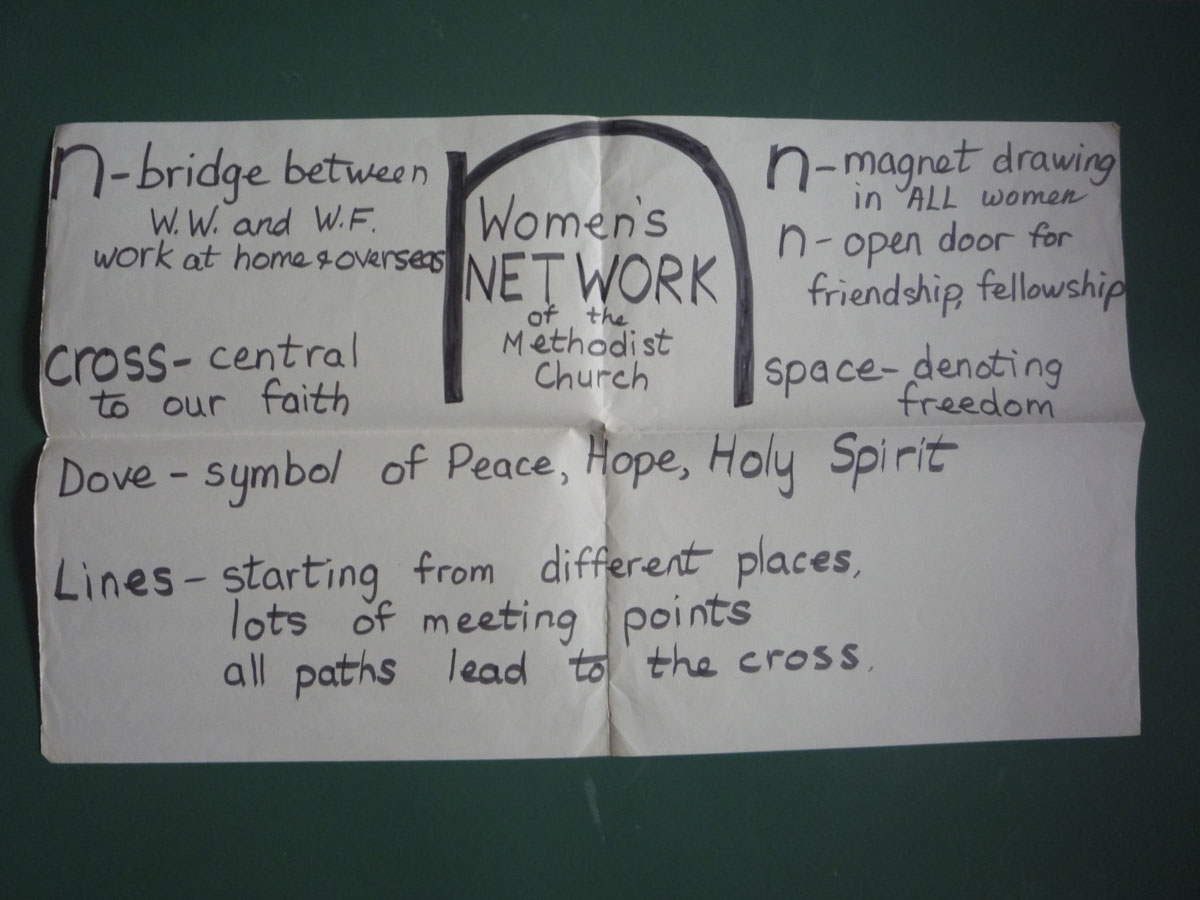 n-bridge between
W.W. and W.F.
work at home & overseas
cross- central
to our faith
n
Women's
NETWORK
of the
Methodist
Church
n-magnet drawing
in ALL women
n- open door for
friendship, fellowship
space- denoting
freedom
Dove - symbol of Peace, Hope, Holy Spirit
Lines- starting from different places,
lots of meeting points
all paths lead to the cross.